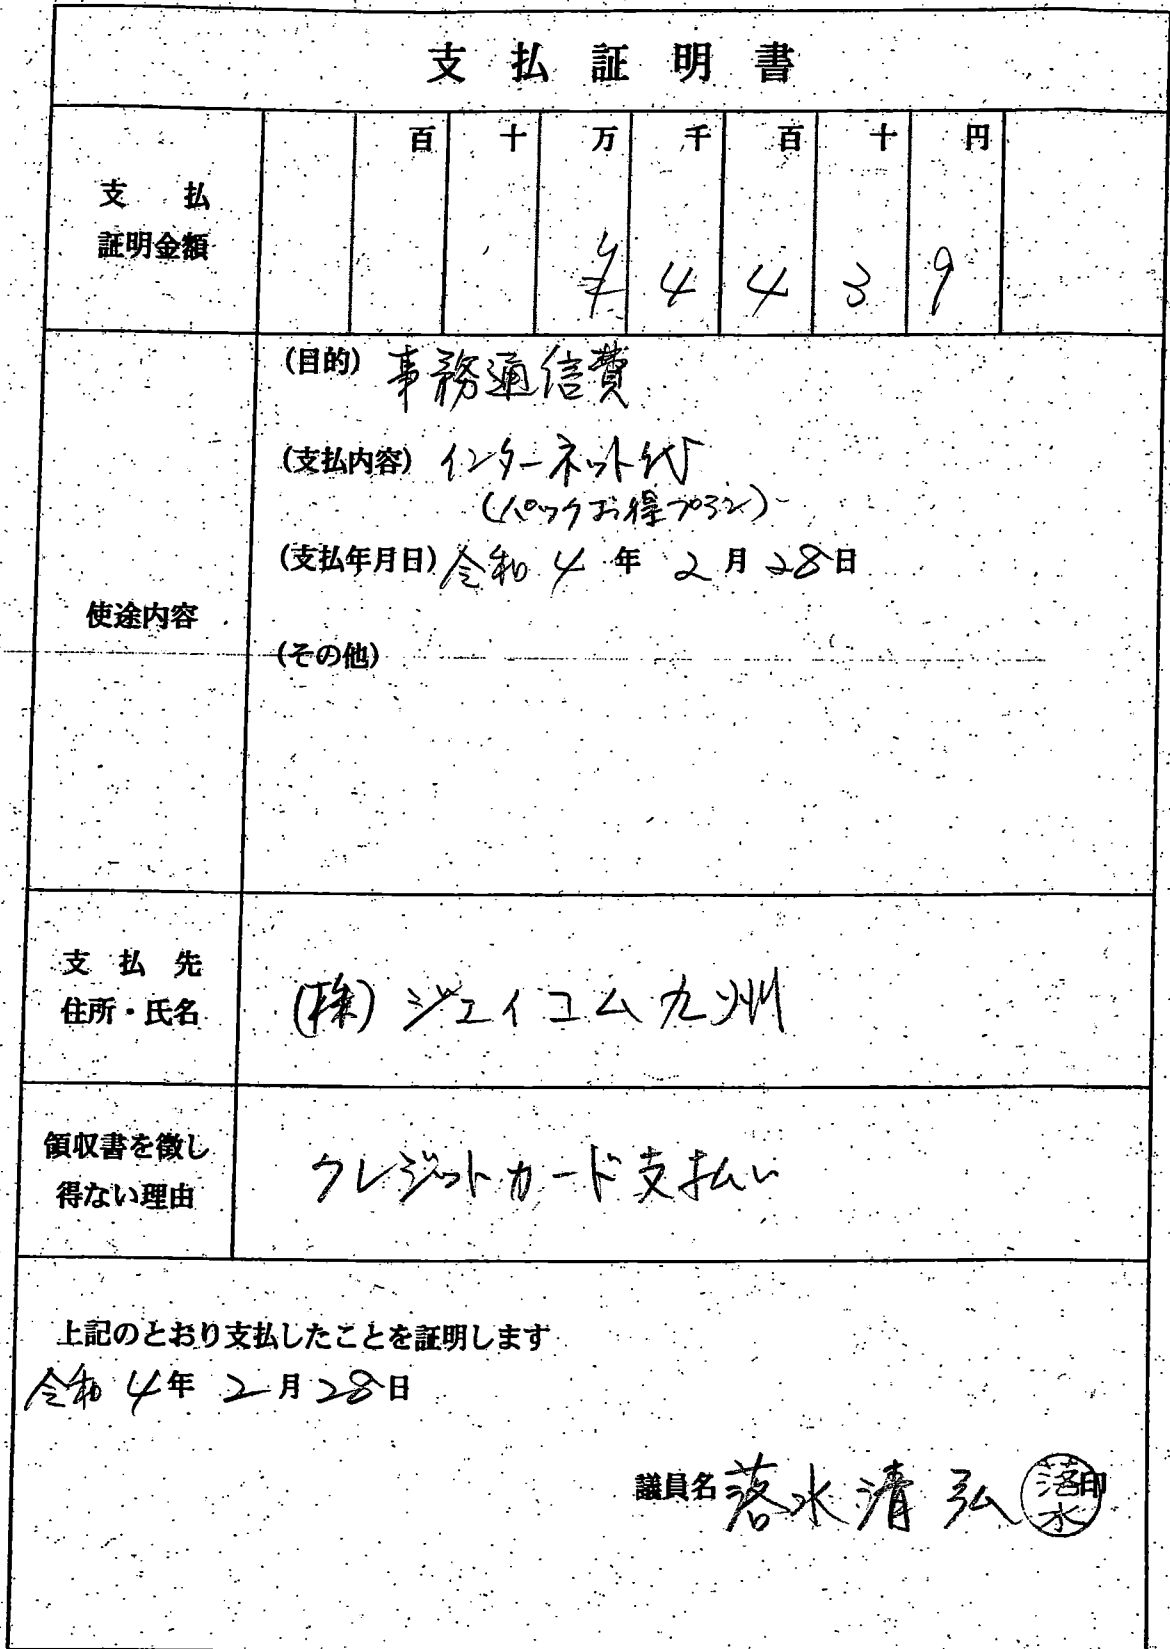 支払証明書
百 十 万 千 百 十 円
支払
証明金額
¥ 4 4 3 9
(目的) 事務通信費
(支払内容) インターネット代
(パックお得プラン)
(支払年月日) 令和 4 年 2 月 28 日
使途内容
(その他)
支払先
住所・氏名
(株) ジェイコム九州
領収書を徴し
得ない理由
クレジットカード支払い
上記のとおり支払したことを証明します
令和 4 年 2 月 28 日
議員名 落水清弘 印
落水